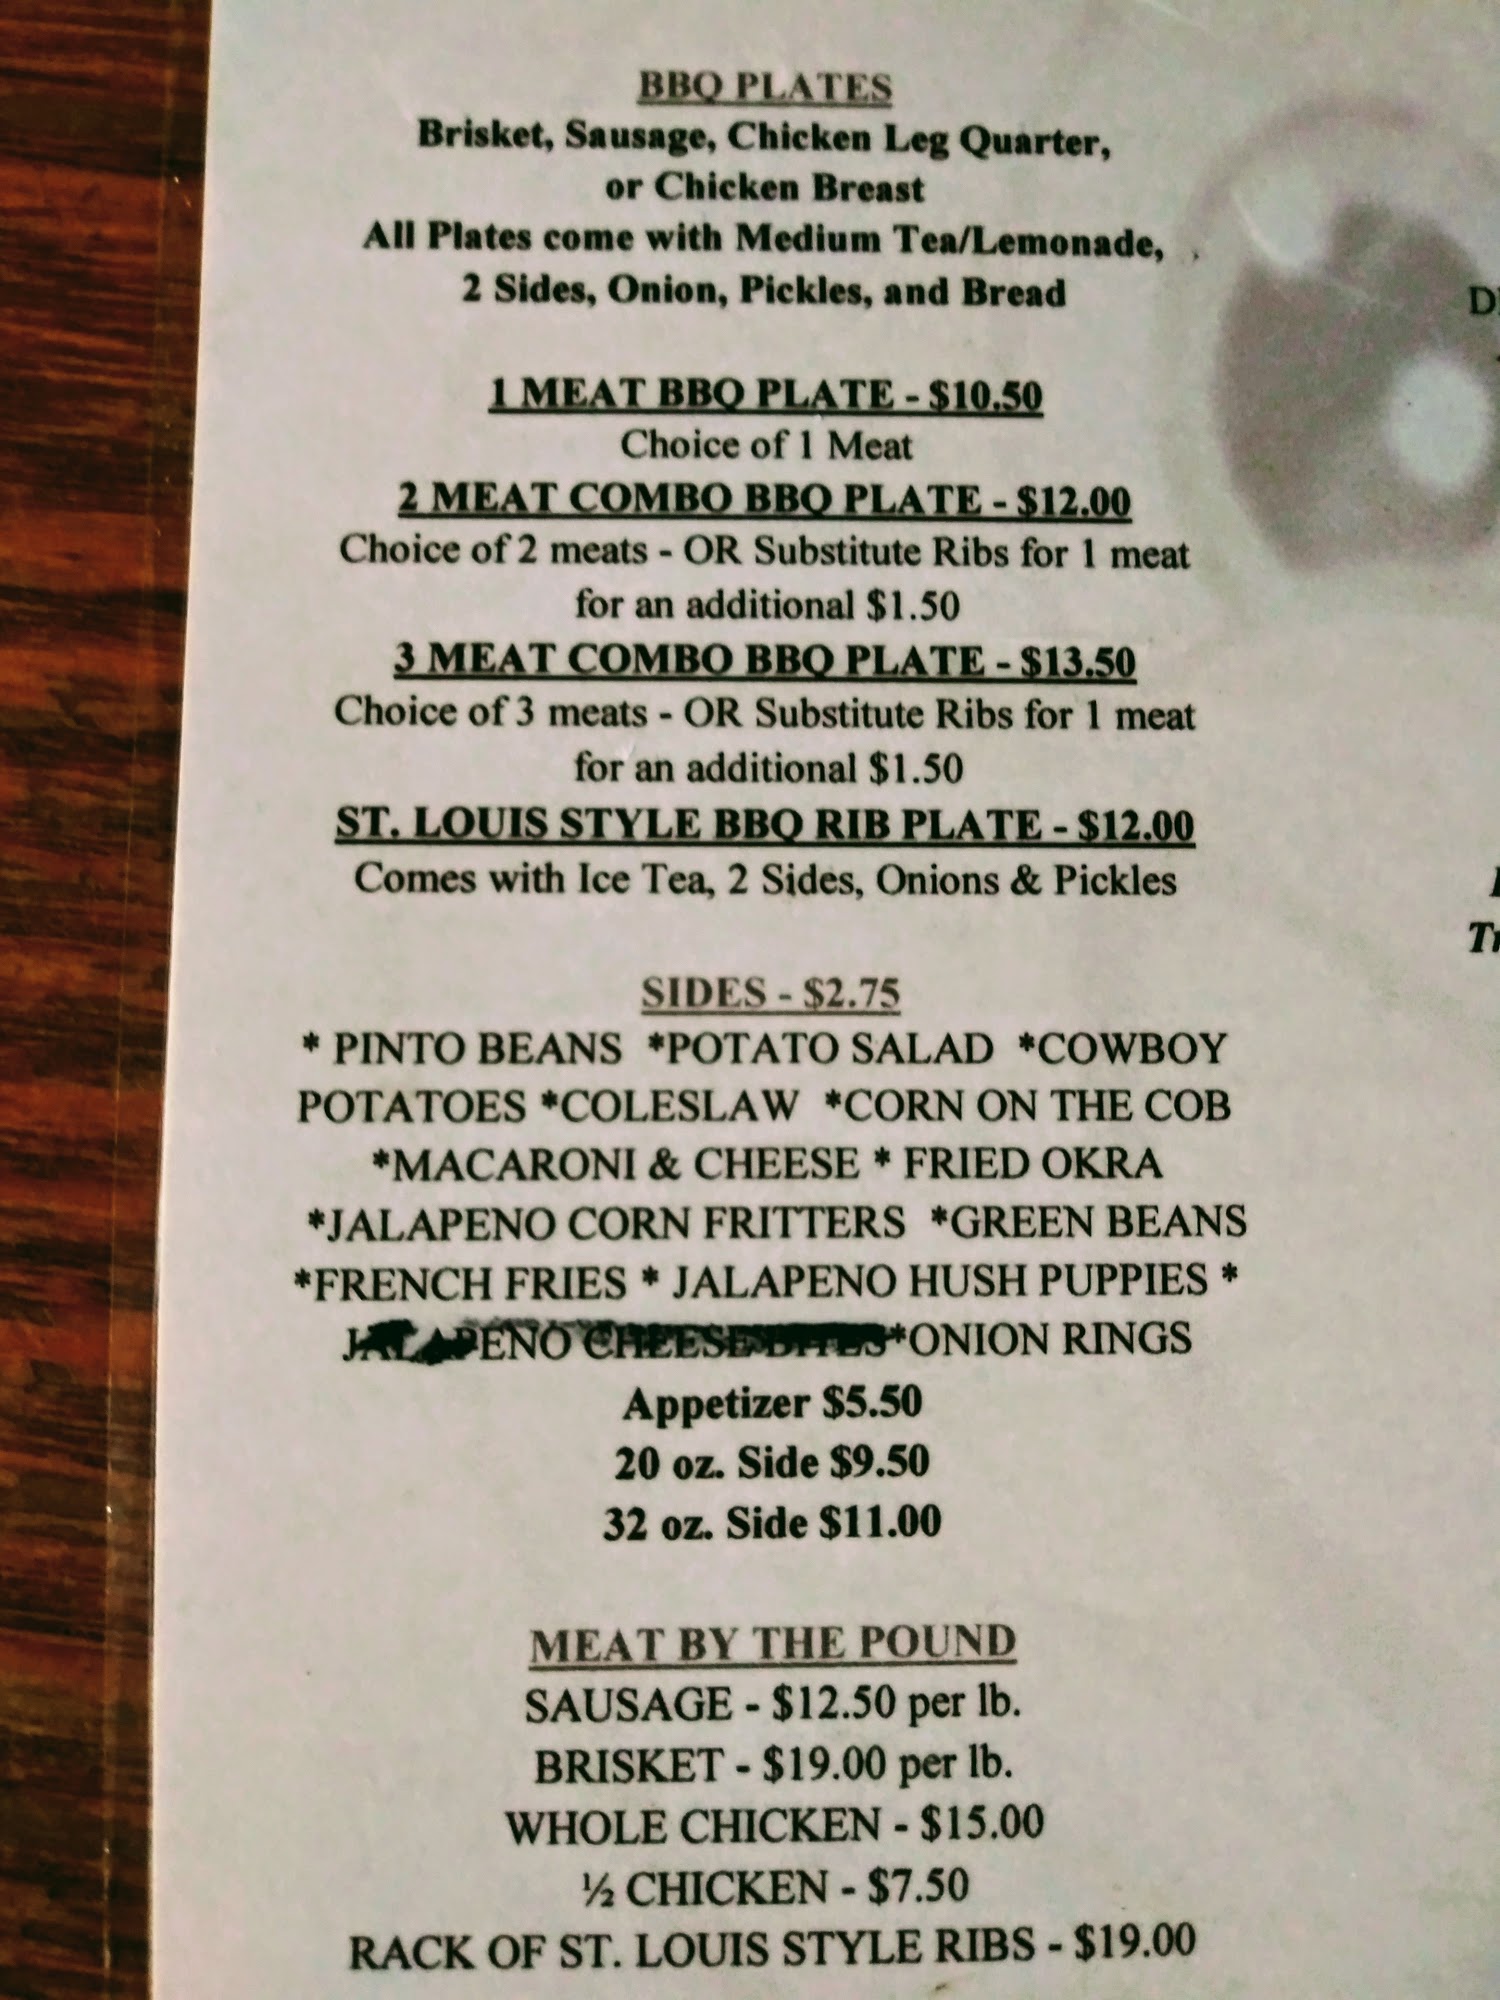 BBQ PLATES
Brisket, Sausage, Chicken Leg Quarter,
or Chicken Breast
All Plates come with Medium Tea/Lemonade,
2 Sides, Onion, Pickles, and Bread
1 MEAT BBQ PLATE - $10.50
Choice of 1 Meat
2 MEAT COMBO BBQ PLATE - $12.00
Choice of 2 meats - OR Substitute Ribs for 1 meat
for an additional $1.50
3 MEAT COMBO BBQ PLATE - $13.50
Choice of 3 meats - OR Substitute Ribs for 1 meat
for an additional $1.50
ST. LOUIS STYLE BBQ RIB PLATE - $12.00
Comes with Ice Tea, 2 Sides, Onions & Pickles
SIDES - $2.75
* PINTO BEANS *POTATO SALAD *COWBOY
POTATOES *COLESLAW *CORN ON THE COB
*MACARONI & CHEESE * FRIED OKRA
*JALAPENO CORN FRITTERS *GREEN BEANS
*FRENCH FRIES * JALAPENO HUSH PUPPIES *
JALAPENO CHEESE BITES *ONION RINGS
Appetizer $5.50
20 oz. Side $9.50
32 oz. Side $11.00
MEAT BY THE POUND
SAUSAGE - $12.50 per lb.
BRISKET - $19.00 per lb.
WHOLE CHICKEN - $15.00
½ CHICKEN - $7.50
RACK OF ST. LOUIS STYLE RIBS - $19.00